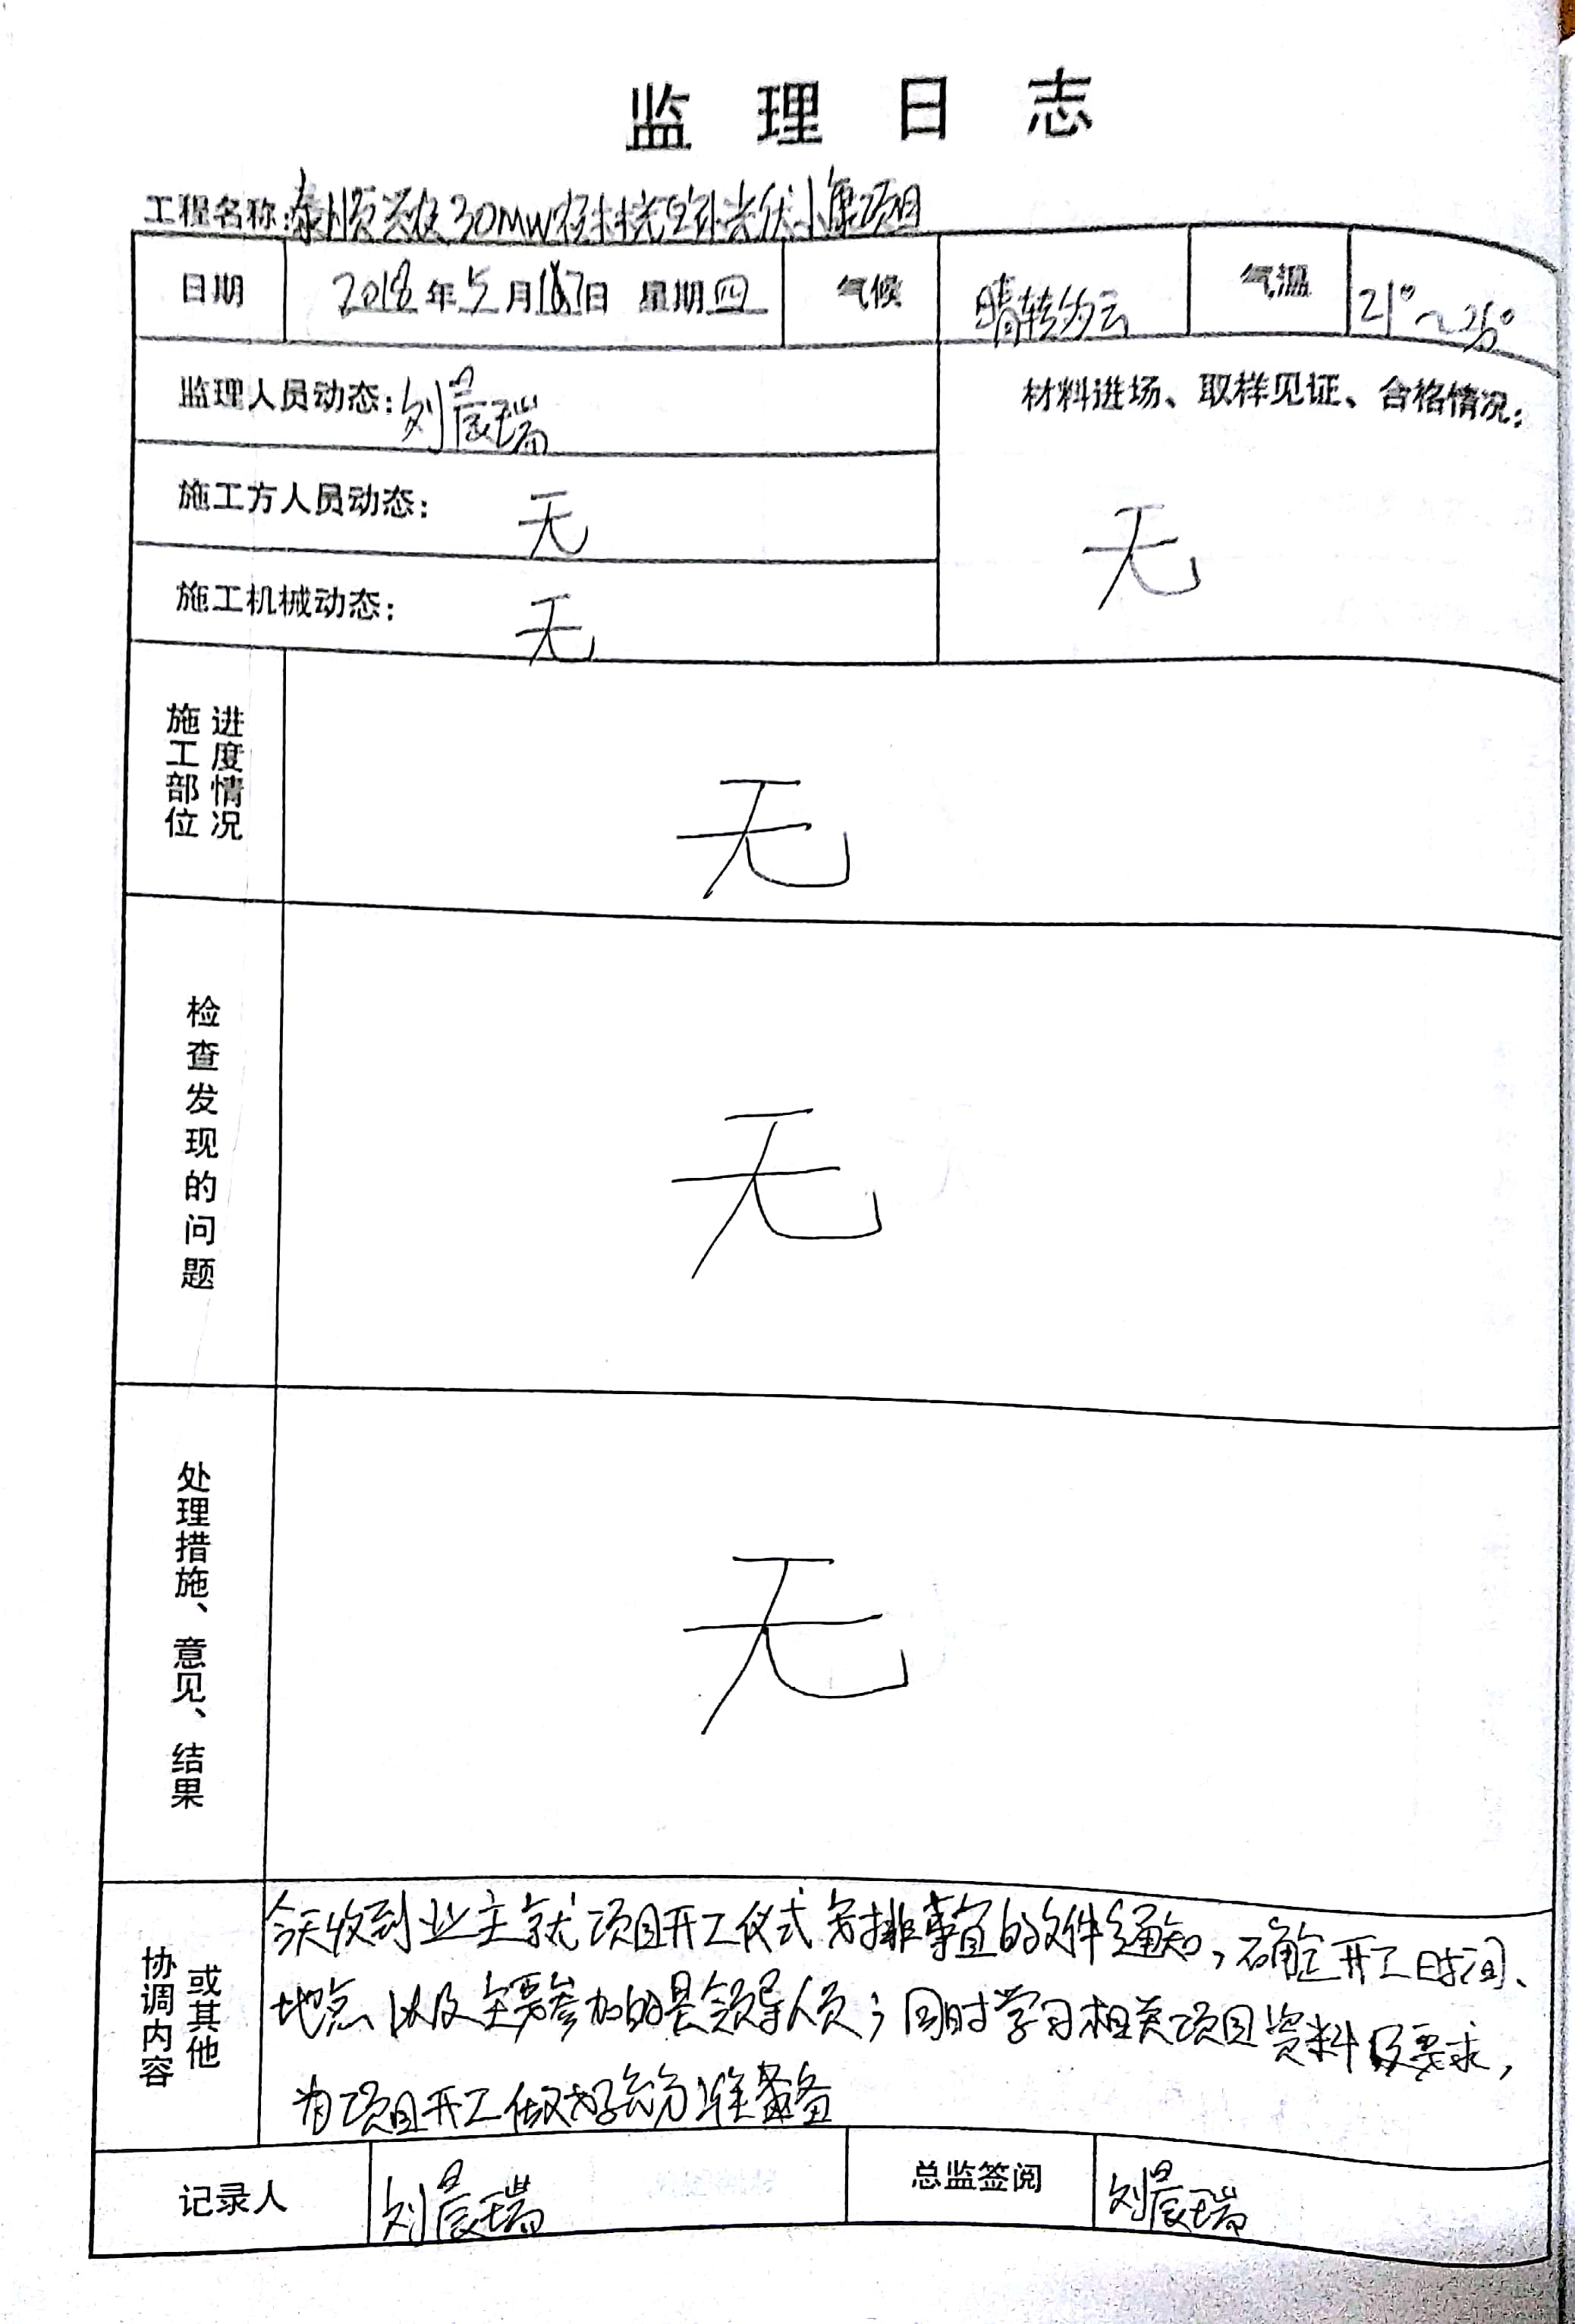 监理日志
工程名称:泰顺兴农30MW农林光互补光伏小康项目
日期 2018年5月17日 星期四 气候 晴转多云 气温 21°~25°
监理人员动态:刘晨瑞 材料进场、取样见证、合格情况:
施工方人员动态: 无 无
施工机械动态: 无
施工部位进度情况 无
检查发现的问题 无
处理措施、意见、结果 无
协调内容或其他 今天收到业主就项目开工仪式安排事宜的文件通知,确定开工时间、
地点以及主要参加的县领导人员;同时学习相关项目资料及要求,
为项目开工做好充分准备
记录人 刘晨瑞 总监签阅 刘晨瑞